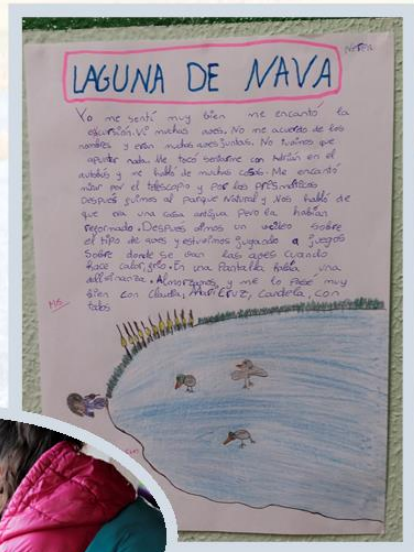 Nerea
LAGUNA DE NAVA
Yo me sentí muy bien me encantó la
excursión. Vi muchas aves. No me acuerdo de los
nombres y eran muchas aves juntas. No tuvimos que
apuntar nada. Me tocó sentarme con Adrián en el
autobús y me habló de muchas cosas. Me encantó
mirar por el telescopio y por los prismáticos
Después fuimos al parque Natural y Nos habló de
que era una casa antigua pero la habían
reformado. Después vimos un video sobre
el tipo de aves y estuvimos jugando a juegos
Sobre donde se van las aves cuando
hace calor, frio. En una Pantalla había una
adivinanza. Almorzamos, y me lo pasé muy
bien con Claudia, Mari Cruz, Candela, con
todos